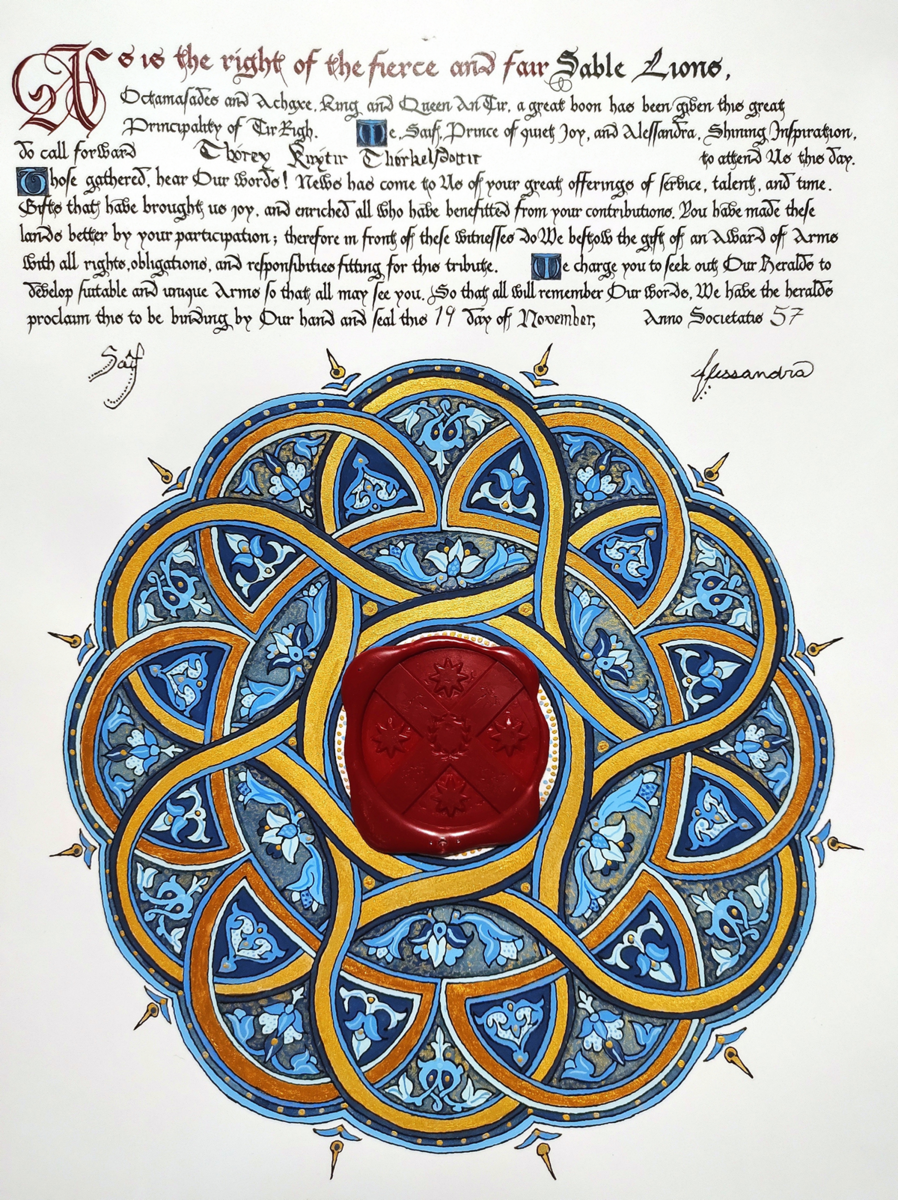 As is the right of the fierce and fair Sable Lions,
Octamasades and Achaxe, King and Queen An Tir, a great boon has been given this great
Principality of Tir Righ. We, Saif, Prince of quiet Joy, and Alessandra, Shining Inspiration,
do call forward Thórey Knýtir Thorkelsdottir to attend Us this day.
Those gathered, hear Our words! News has come to Us of your great offerings of service, talent, and time.
Gifts that have brought us joy, and enriched all who have benefitted from your contributions. You have made these
lands better by your participation; therefore in front of these witnesses do We bestow the gift of an Award of Arms
with all rights, obligations, and responsibities fitting for this tribute. We charge you to seek out Our Heralds to
develop suitable and unique Arms so that all may see you. So that all will remember Our words, We have the heralds
proclaim this to be binding by Our hand and seal this 19 day of November, Anno Societatis 57
Saif
Alessandra